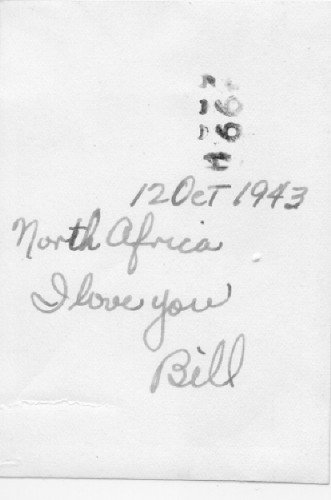 12 Oct 1943
North Africa
I love you
Bill